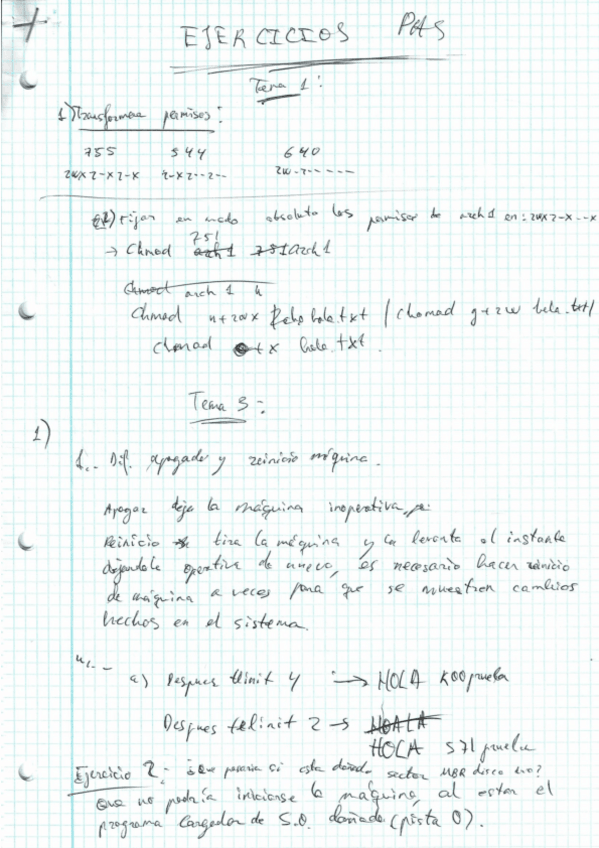 EJERCICIOS PAS
Tema 1:
1) Transformar permisos:
755 544 640
rwxr-xr-x r-xr--r-- rw-r-----
2) Fijar en modo absoluto los permisos de arch1 en: rwxr-x--x
751
→ Chmod arch1 751 arch1
Chmod arch 1 u
Chmod u+rwx hola.txt / chomad g+rw hola.txt/
chmad o+x hola.txt.
Tema 3:
1)
1.- Dif. apagado y reinicio máquina.
Apagar deja la máquina inoperativa,
Reinicio tira la máquina y la levanta al instante
dejandola operativa de nuevo, es necesario hacer reinicio
de máquina a veces para que se muestren cambios
hechos en el sistema.
4.-
a) Despues tlinit 4 → HOLA K00prueba
Despues telinit 2 → HOALA
HOLA S71prueba
Ejercicio 2: ¿Que pasaria si esta dañado sector MBR disco duro?
Que no podría iniciarse la máquina, al estar el
programa cargador de S.O. dañado (pista 0).